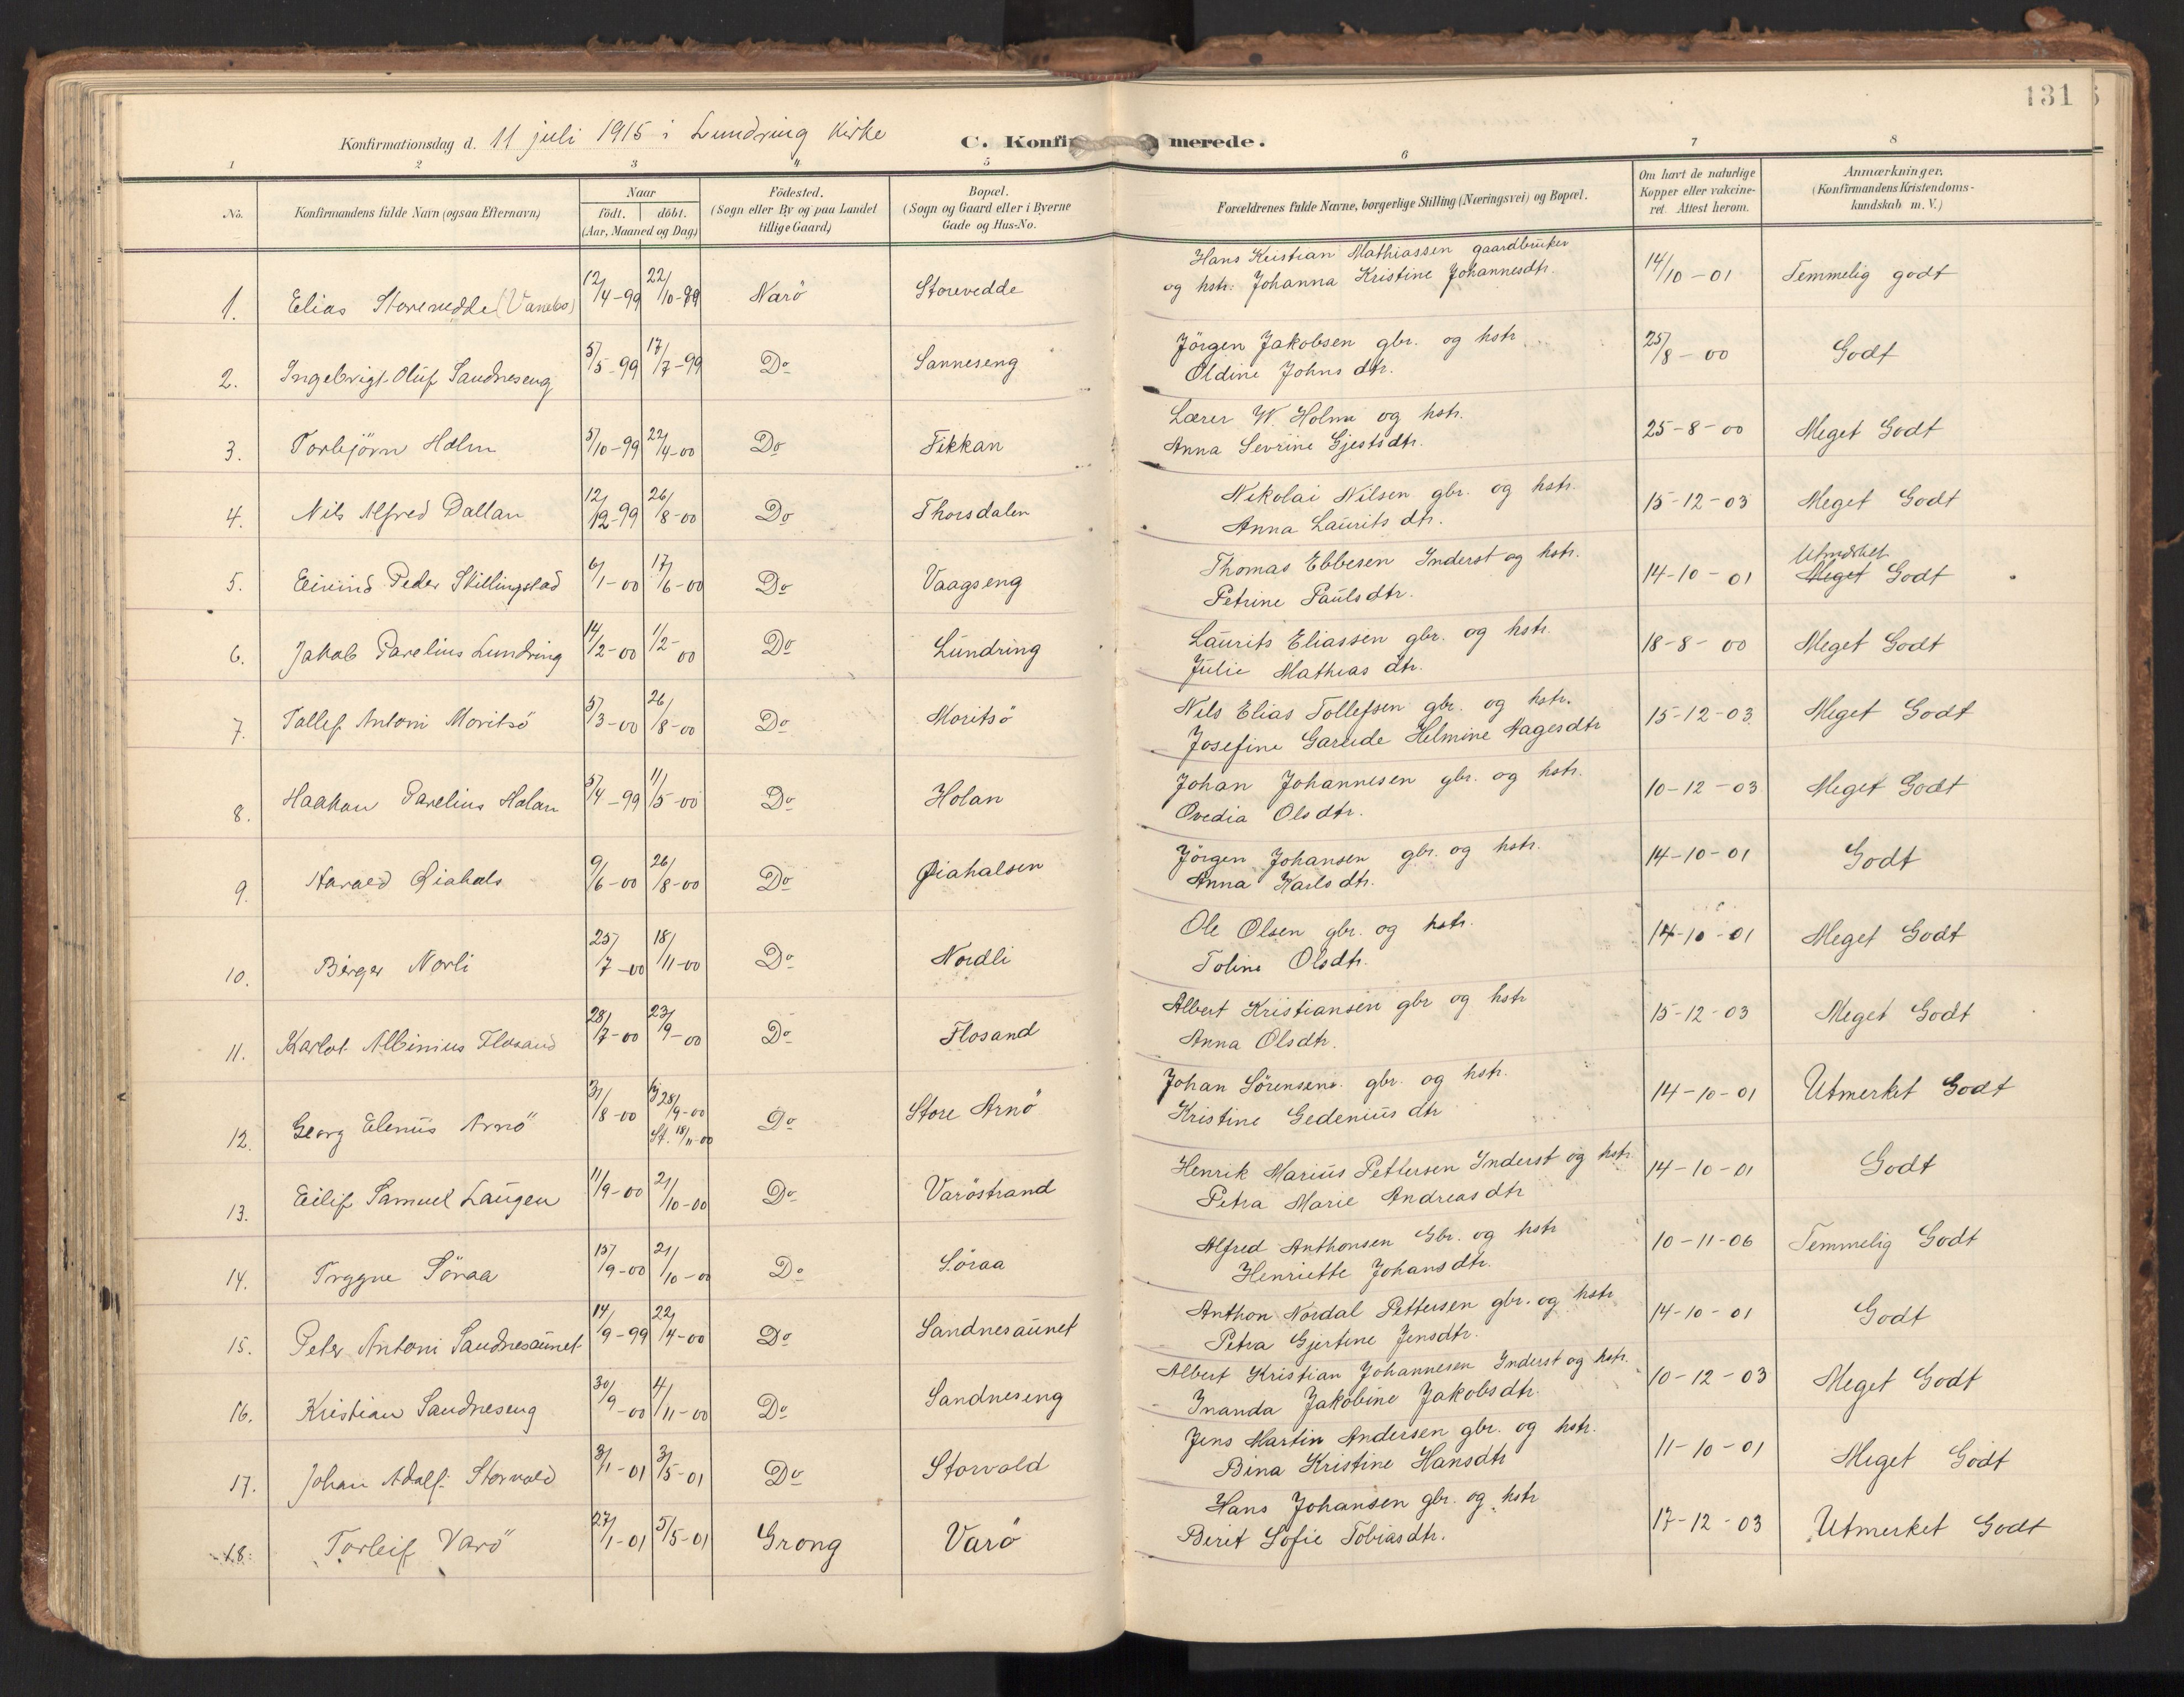 131
Konfirmationsdag d. 11 juli 1915 i Lundring Kirke
C. Konfir merede.
1 2 3 4 5 6 7 8
No. Konfirmandens fulde Navn (ogsaa Efternavn) Naar födt. döbt. (Aar, Maaned og Dag) Födested. (Sogn eller By og paa Landet tillige Gaard) Bopæl. (Sogn og Gaard eller i Byerne Gade og Hus-No. Forældrenes fulde Navne, borgerlige Stilling (Næringsvei) og Bopæl. Om havt de naturlige Kopper eller vakcineret. Attest herom. Anmærkninger. (Konfirmandens Kristendomskundskab m. V.)
1. Elias Storevedde (Vanebo) 12/4-99 22/10-99 Narö Storevedde Hans Kristian Mathiassen gaardbruker 14/10-01 Temmelig godt
og hstr. Johanna Kristine Johannesdtr.
2. Ingebrigt Oluf Sandneseng 5/5-99 17/7-99 Do Sanneseng Jörgen Jakobsen gbr. og hstr 25/8-00 Godt
Oldine Johnsdtr.
3. Torbjörn Holm 5/10-99 22/4-00 Do Fikkan Lærer W. Holm og hstr. 25-8-00 Meget Godt
Anna Sevrine Gjestsdtr.
4. Nils Alfred Dallan 12/12-99 26/8-00 Do Thorsdalen Nikolai Nilsen gbr. og hstr. 15-12-03 Meget Godt
Anna Lauritsdtr.
5. Eivind Peder Skillingstad 6/1-00 17/6-00 Do Vaagseng Thomas Ebbesen Inderst og hstr. 14-10-01 Utmerket Meget Godt
Petrine Paulsdtr.
6. Jakob Parelius Lundring 14/2-00 1/2-00 Do Lundring Laurits Eliassen gbr. og hstr. 18-8-00 Meget Godt
Julie Mathiasdtr.
7. Tollef Antoni Moritsö 5/3-00 26/8-00 Do Moritsö Nils Elias Tollefsen gbr. og hstr. 15-12-03 Meget Godt
Josefine Helmine Hagesdtr
8. Haakon Parelius Holan 5/4-99 11/5-00 Do Holan Johan Johannesen gbr. og hstr. 10-12-03 Meget Godt
Ovedia Olsdtr.
9. Harald Øiahals 9/6-00 26/8-00 Do Øiahalsen Jörgen Johansen gbr. og hstr. 14-10-01 Godt
Anna Karlsdtr.
10. Birger Norli 25/7-00 18/11-00 Do Nordli Ole Olsen gbr. og hstr. 14-10-01 Meget Godt
Toline Olsdtr.
11. Karlot Albinius Flosand 28/7-00 23/9-00 Do Flosand Albert Kristiansen gbr og hstr 15-12-03 Meget Godt
Anna Olsdtr.
12. Georg Elenius Arnö 31/8-00 hj 28/9-00 St. 18/11-00 Do Store Arnö Johan Sörensen gbr. og hstr. 14-10-01 Utmerket Godt
Kristine Gedeniusdtr
13. Eilif Samuel Laugen 11/9-00 21/10-00 Do Varöstrand Henrik Marius Pettersen Inderst og hstr. 14-10-01 Godt
Petra Marie Andreasdtr
14. Trygve Söraa 15/9-00 21/10-00 Do Söraa Alfred Anthonsen Gbr. og hstr 10-11-06 Temmelig Godt
Henriette Johansdtr.
15. Peter Antoni Sandnesaunet 14/9-99 22/4-00 Do Sandnesaunet Anthon Nordal Pettersen gbr. og hstr 14-10-01 Godt
Petra Gjertine Jensdtr.
16. Kristian Sandneseng 30/9-00 4/11-00 Do Sandneseng Albert Kristian Johannesen Inderst og hstr. 10-12-03 Meget Godt
Inanda Jakobine Jakobsdtr.
17. Johan Adolf Storvold 3/1-01 3/5-01 Do Storvold Jens Martin Andersen gbr. og hstr. 11-10-01 Meget Godt
Bina Kristine Hansdtr
18. Torleif Varö 27/1-01 5/5-01 Grong Varö Hans Johansen gbr. og hstr 17-12-03 Utmerket Godt
Berit Sofie Tobiasdtr.